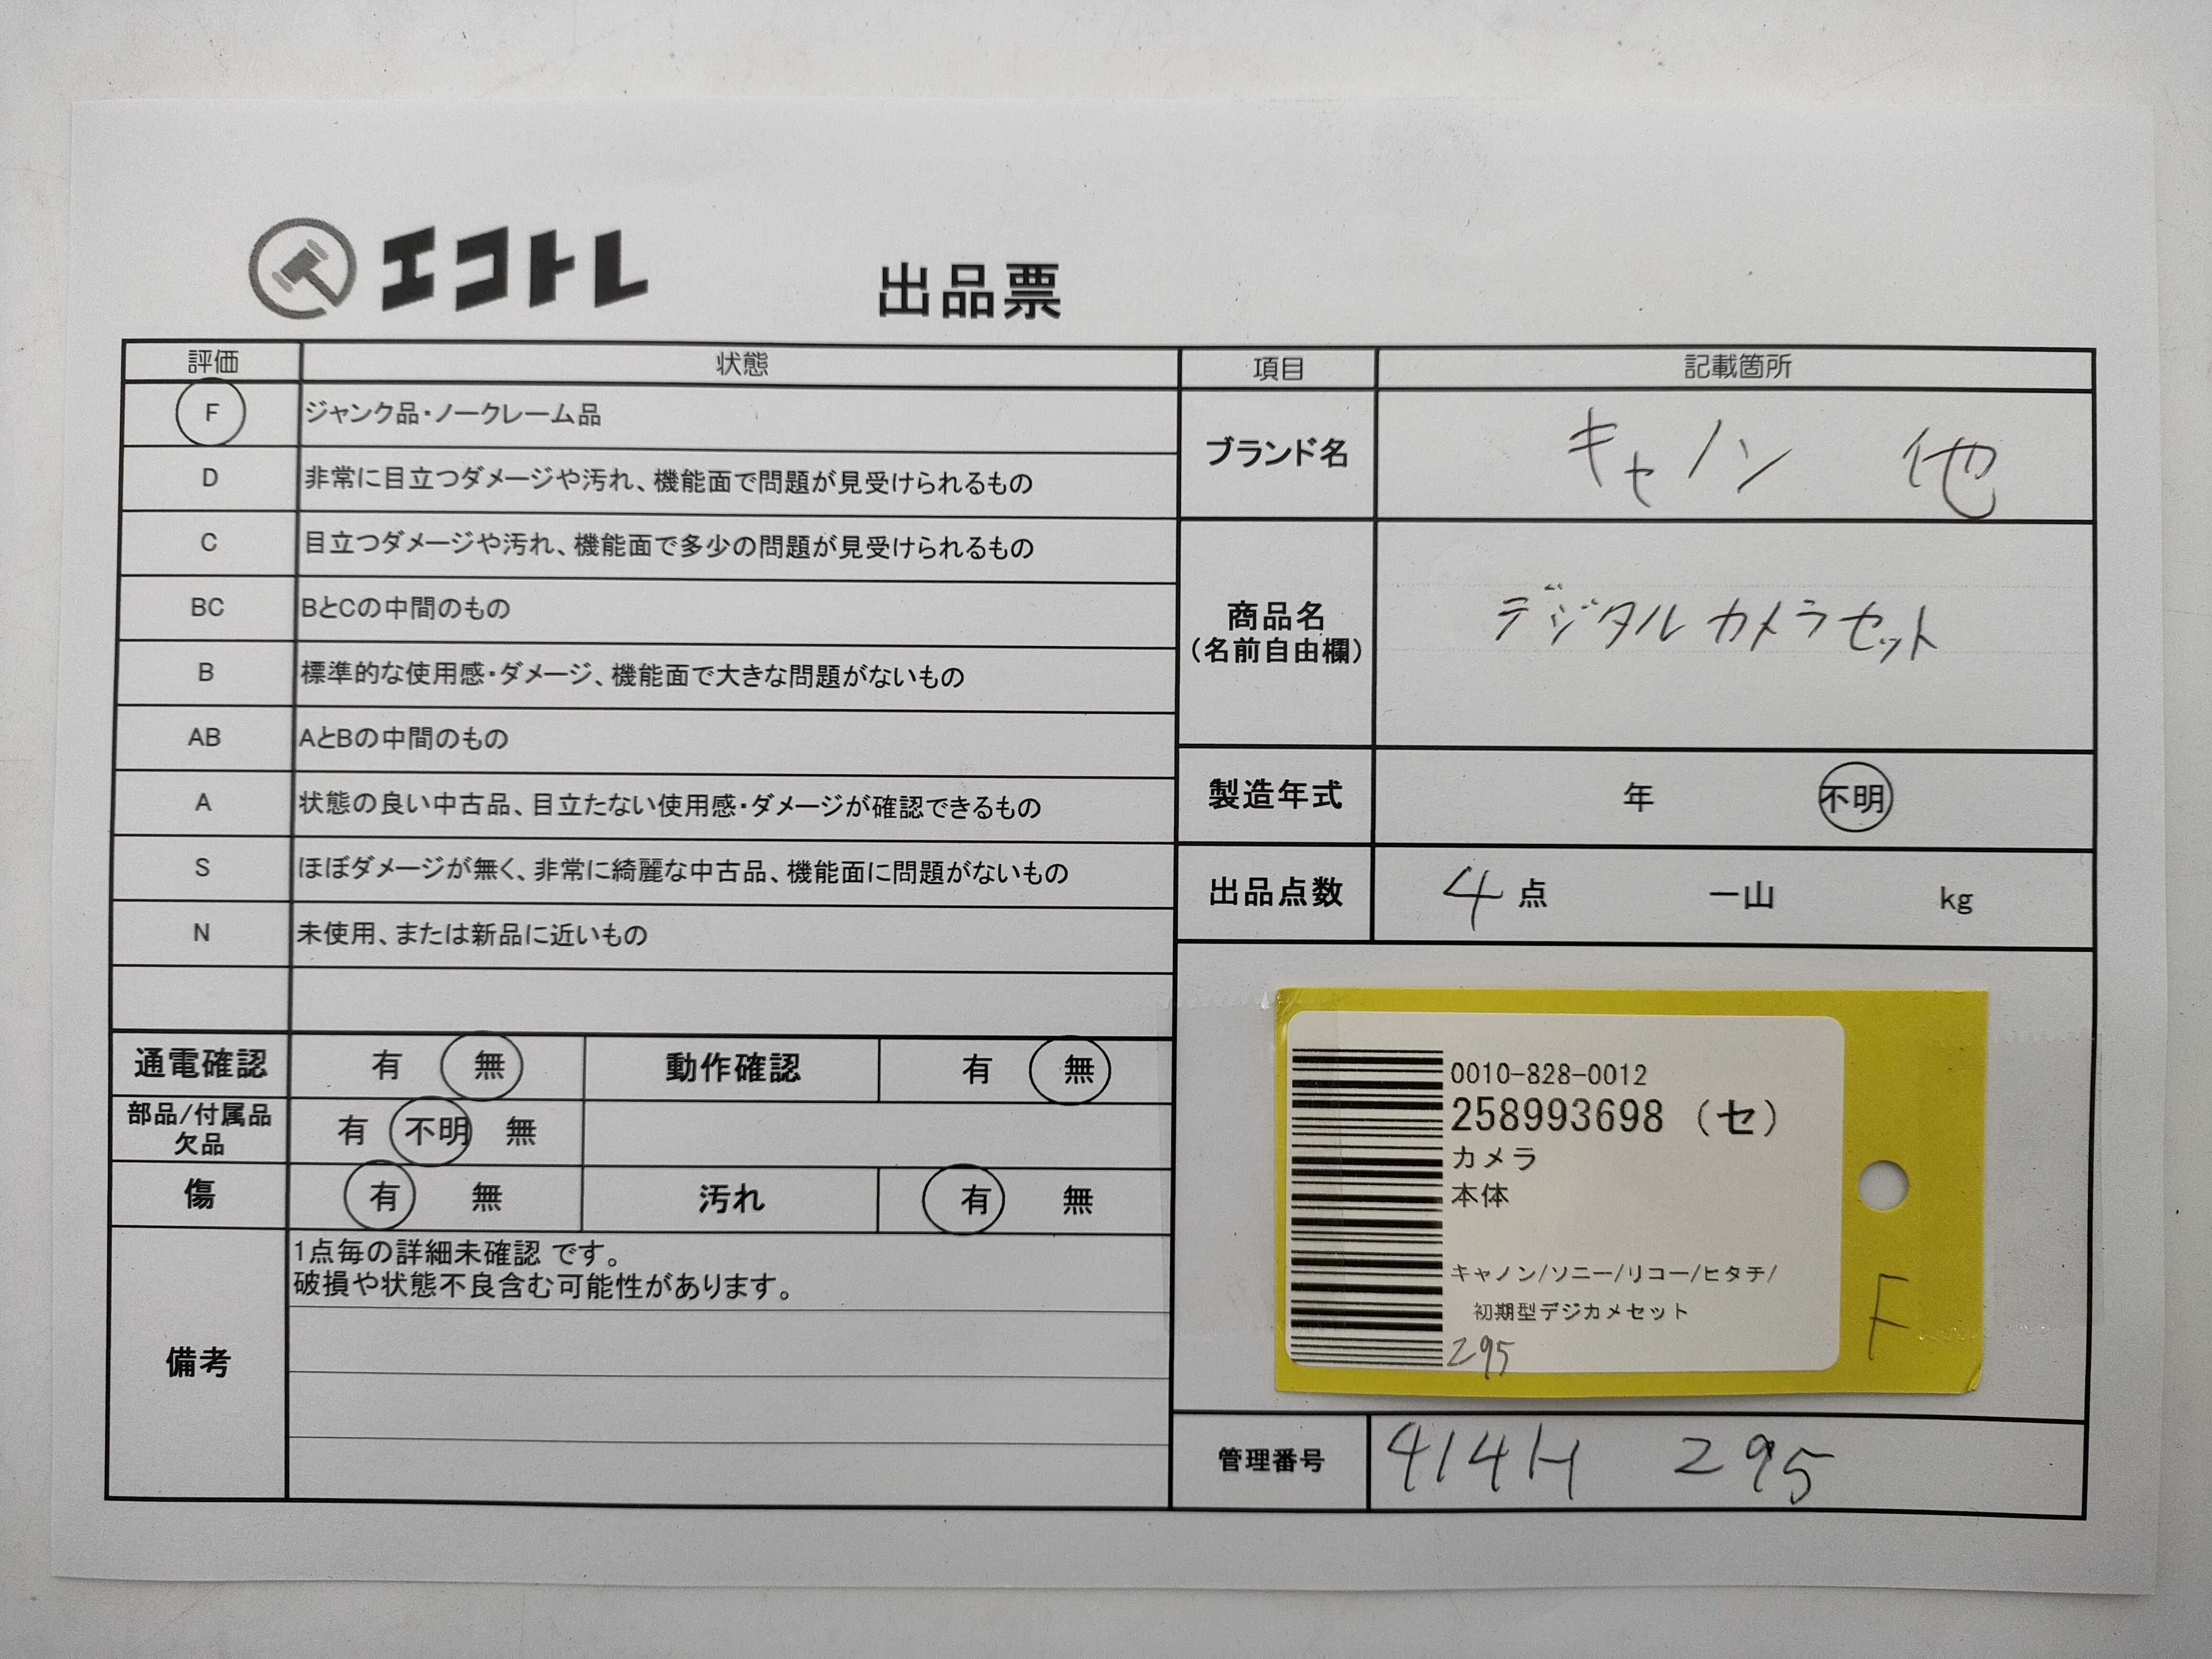 エコトレ
出品票
評価 状態
F ジャンク品・ノークレーム品
D 非常に目立つダメージや汚れ、機能面で問題が見受けられるもの
C 目立つダメージや汚れ、機能面で多少の問題が見受けられるもの
BC BとCの中間のもの
B 標準的な使用感・ダメージ、機能面で大きな問題がないもの
AB AとBの中間のもの
A 状態の良い中古品、目立たない使用感・ダメージが確認できるもの
S ほぼダメージが無く、非常に綺麗な中古品、機能面に問題がないもの
N 未使用、または新品に近いもの
通電確認 有 無 動作確認 有 無
部品/付属品
欠品 有 不明 無
傷 有 無 汚れ 有 無
備考
1点毎の詳細未確認 です。
破損や状態不良含む可能性があります。
項目 記載箇所
ブランド名 キャノン 他
商品名
(名前自由欄)
デジタルカメラセット
製造年式 年 不明
出品点数 4点 一山 kg
0010-828-0012
258993698 (セ)
カメラ
本体
キャノン/ソニー/リコー/ヒタチ/
初期型デジカメセット
295
F
管理番号 414H 295